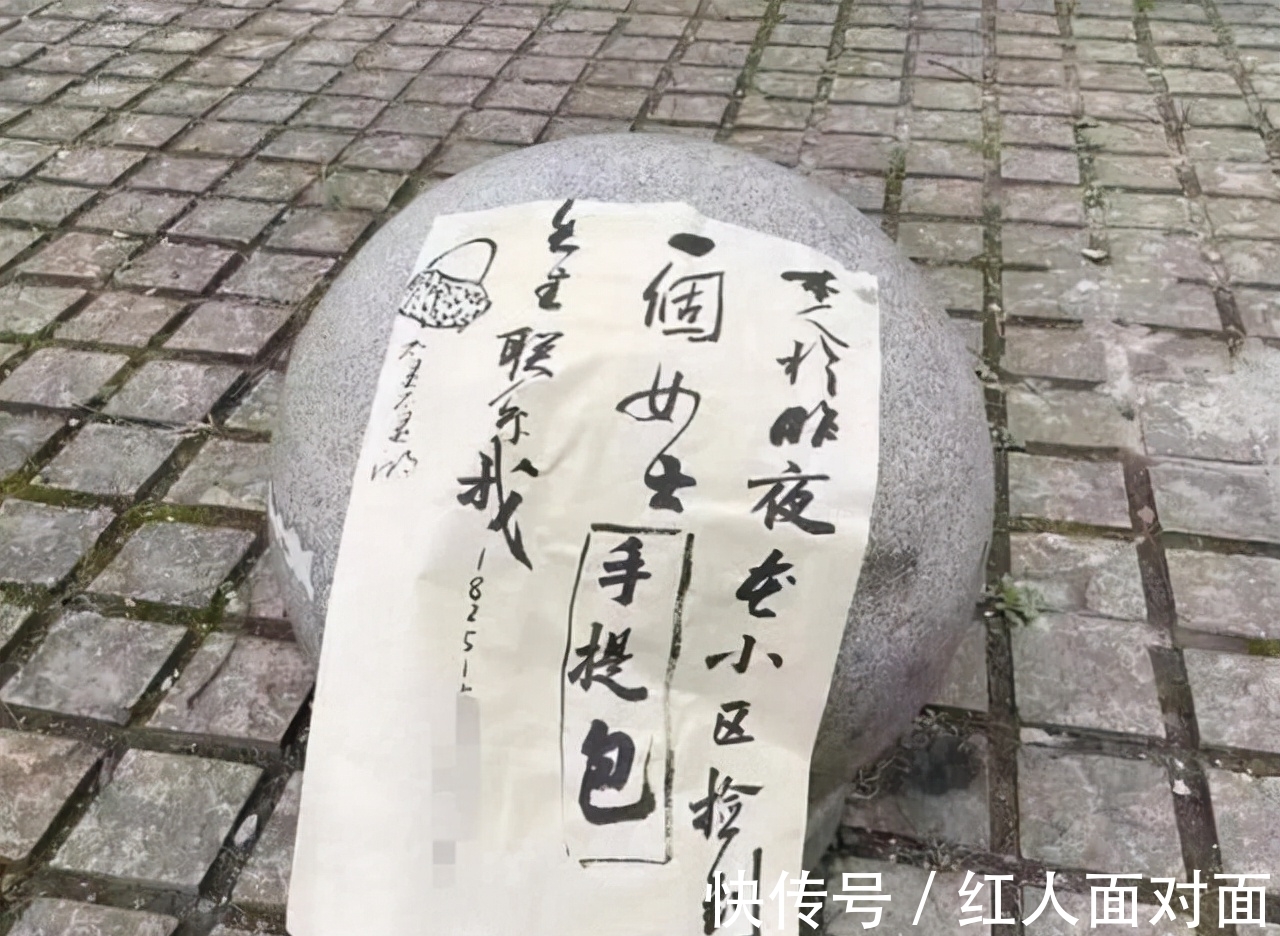 本人於昨夜在小区捡到
一個女士手提包
失主联系我
18251
快传号 / 红人面对面